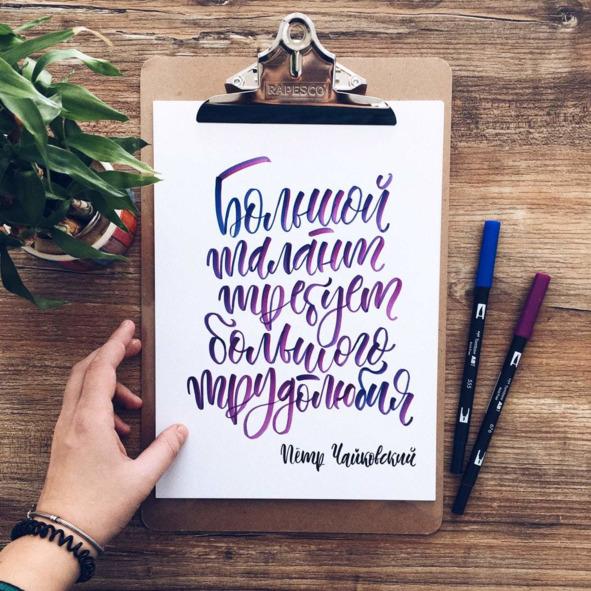 RAPESCO
Большой
талант
требует
большого
трудолюбия
Пётр Чайковский